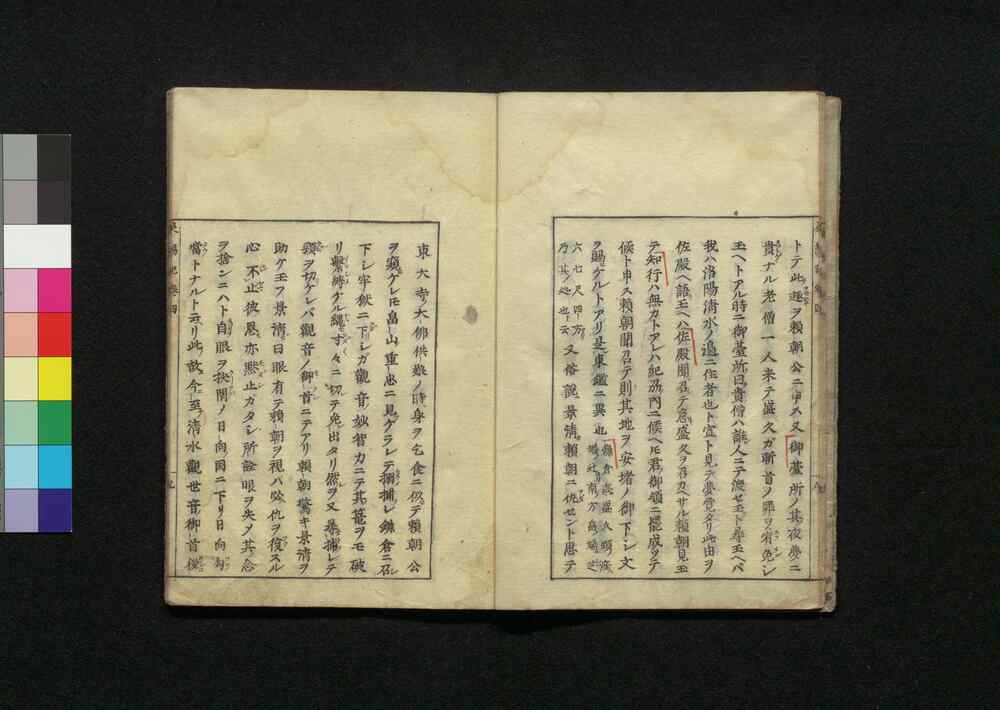 トテ此趣ヲ頼朝公ニ申ス又御臺所ノ其夜夢ニ
貴ナル老僧一人来テ盛久ガ斬首ノ罪ヲ宥免シ
玉ヘトアル時ニ御臺所曰貴僧ハ誰人ニテ渡セ玉ト奉玉ヘバ
我ハ洛陽清水ノ邉ニ住者也ト宣ト見テ夢覚タリ此由ヲ
佐殿ヘ語玉ヘハ佐殿聞召テ急盛久ヲ召カヘサル頼朝見玉
テ知行ハ無カトアレハ紀刕内ニ候ヘ𪜈君御領ニ罷成ヌテ
候ト申ス頼朝聞召テ則其地ヲ安堵ノ御下シ文
ヲ賜ケルトアリ是東鑑ニ異也
鎌倉巡温久頸座
場社ノ南方
六七尺四方
乃其処也云
又俗説景清頼朝ニ仇セント思テ
東大寺ノ大佛供養ノ時身ヲ乞食ニ似テ頼朝公
ヲ窺ケレ𪜈畠山重忠ニ見ゲラレテ搦捕レ鎌倉ニ召
下シ牢獄ニ下シガ觀音妙智力ニテ其篭ヲモ破
リ繋縛ケル縄寸々ニ切テ免出タリ然ヲ又暴捕レテ
頸ヲ切ケレバ觀音ノ御首ニテアリ頼朝驚キ景清ヲ
助ケ玉フ景清曰眼有テ頼朝ヲ視バ必仇ヲ復スル
心不止彼恩亦黙止カタシ所詮眼ヲ失メ其ノ念
ヲ捨ンニハト自眼ヲ抉開ノ日向國ニ下リ日向勾
當トナルト云リ此故今ニ至清水觀世音御首様